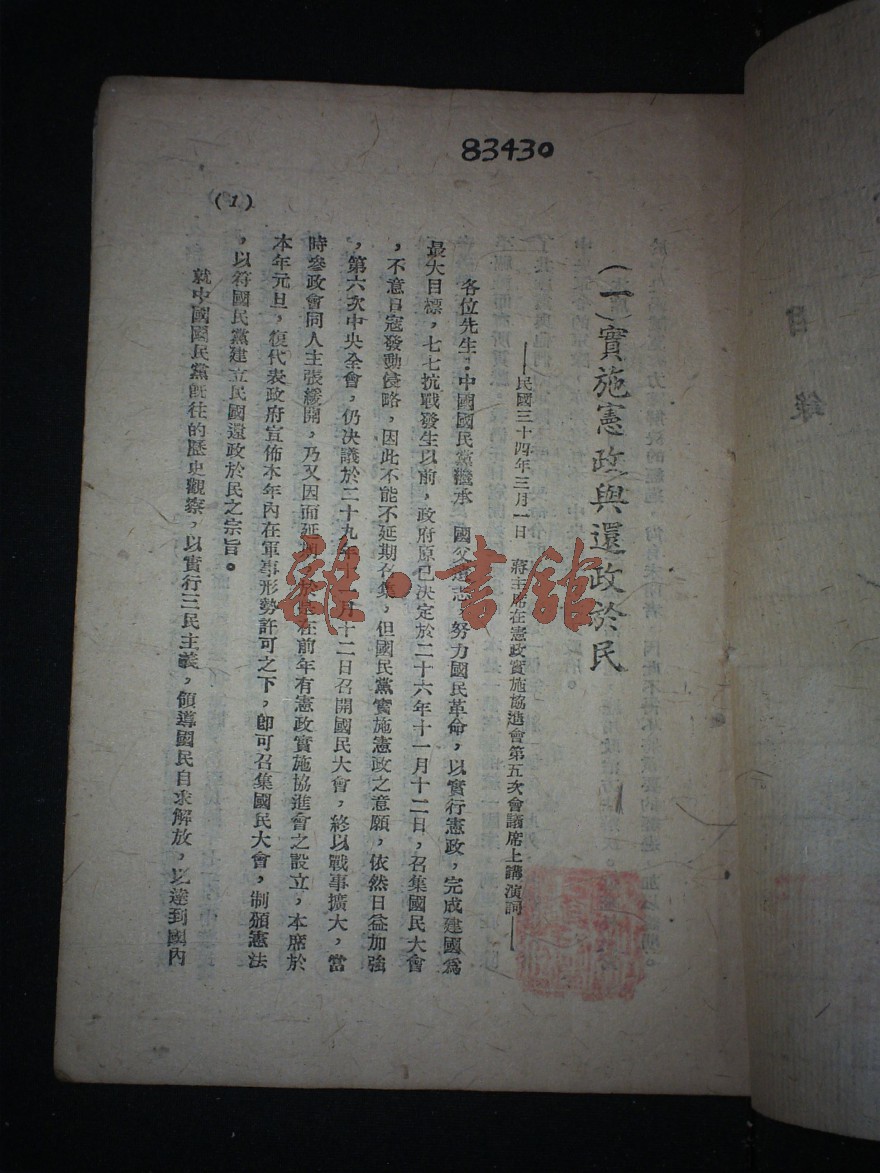 83430
(一)實施憲政與還政於民
——民國三十四年三月一日　蔣主席在憲政實施協進會第五次會議席上講演詞——
各位先生：中國國民黨繼承　國父遺志，努力國民革命，以實行憲政，完成建國爲
最大目標，七七抗戰發生以前，政府原已決定於二十六年十一月十二日，召集國民大會
，不意日寇發動侵略，因此不能不延期召集，但國民黨實施憲政之意願，依然日益加強
，第六次中央全會，仍決議於二十九年 月十二日召開國民大會，終以戰事擴大，當
時參政會同人主張緩開，乃又因而延期，於是在前年有憲政實施協進會之設立，本席於
本年元旦，復代表政府宣佈本年內在軍事形勢許可之下，卽可召集國民大會，制頒憲法
，以符國民黨建立民國還政於民之宗旨。
就中國國民黨旣往的歷史觀察，以實行三民主義，領導國民自求解放，以達到國內
(1)
雜·書館
目錄